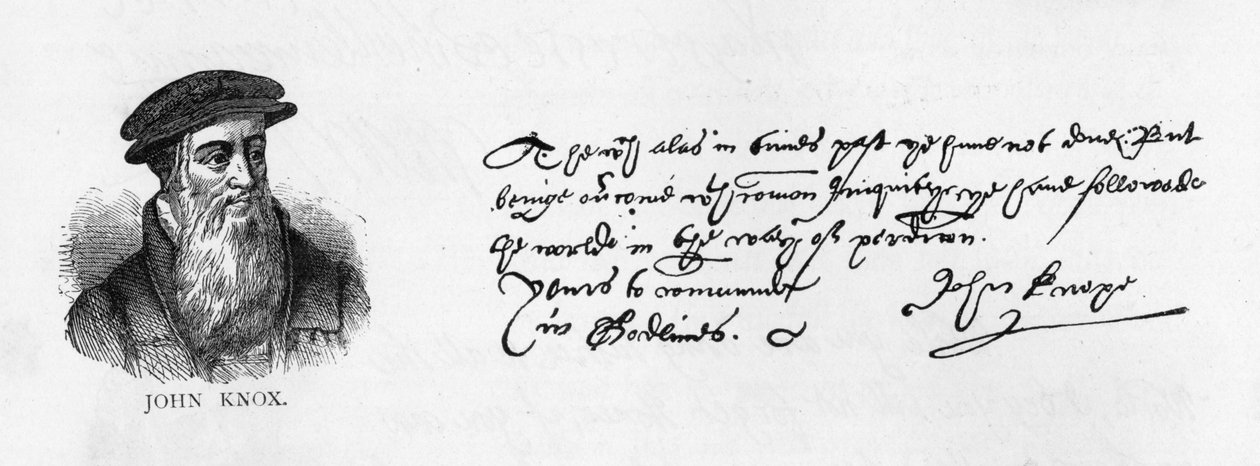 JOHN KNOX.
The wch alas in times past ye haue not done. But
beinge ouercome wth comon Iniquitye ye haue followede
the worlde in the way of perdition.
Yours to commund
in Godlines.
John Knoxe